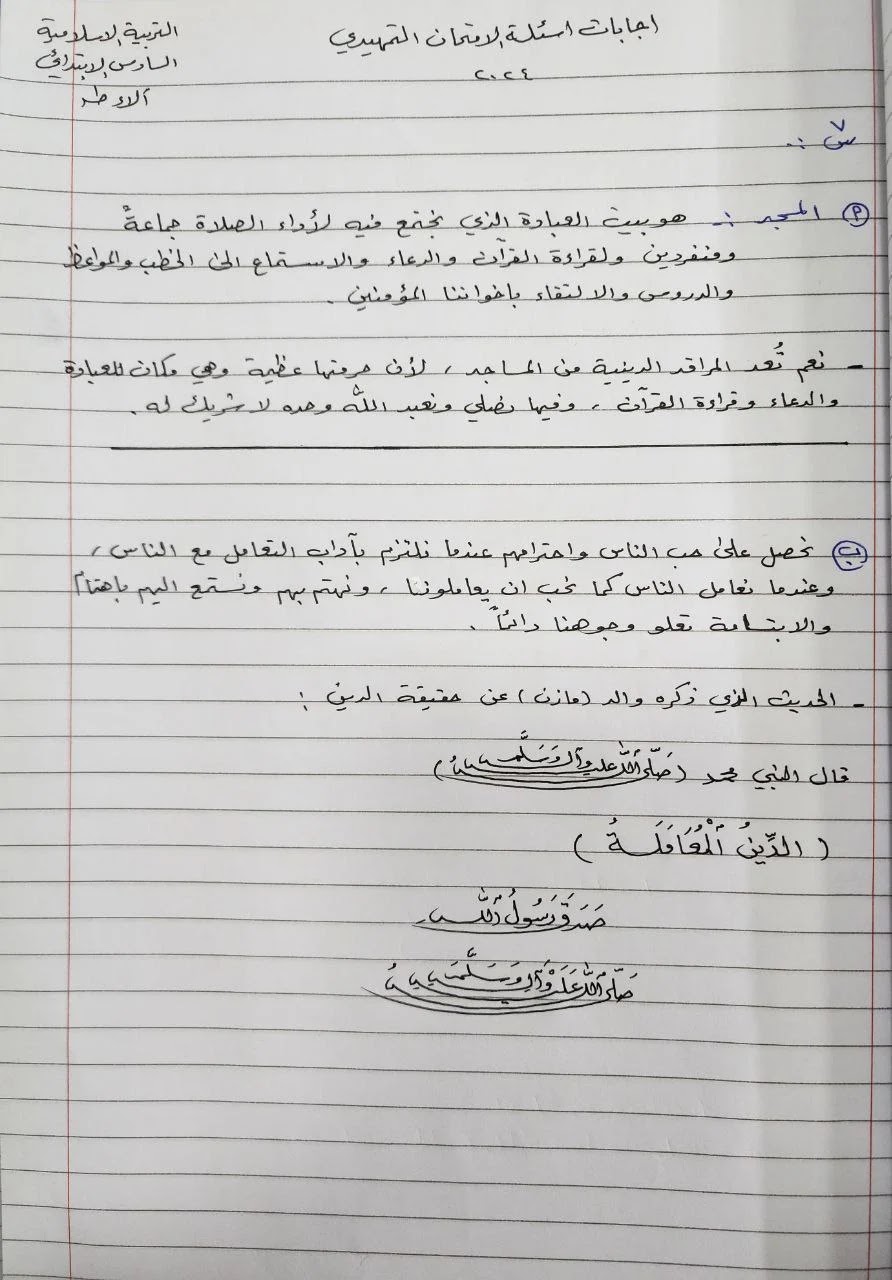 اجابات اسئلة الامتحان التمهيدي
٢٠٢٤
التربية الاسلامية
السادس الابتدائي
آلاء طه
س٧ :-
(أ) المسجد :- هو بيت العبادة الذي نجتمع فيه لأداء الصلاة جماعةً
ومنفردين ولقراءة القرآن والدعاء والاستماع الى الخطب والمواعظ
والدروس والالتقاء باخواننا المؤمنين .
- نعم تُعد المراقد الدينية من المساجد ، لأن حرمتها عظيمة وهي مكان للعبادة
والدعاء وقراءة القرآن ، وفيها نصلي ونعبد الله وحده لا شريك له .
(ب) نحصل على حب الناس واحترامهم عندما نلتزم بآداب التعامل مع الناس ،
وعندما نعامل الناس كما نحب ان يعاملوننا ، ونهتم بهم ونستمع اليهم باهتمام
والابتسامة تعلو وجوهنا دائماً .
- الحديث الذي ذكره والد (مازن) عن حقيقة الدين :
قال النبي محمد (صَلَّى اللّٰه عليه وآله وَسَلَّم)
( الدِّينُ ٱلْمُعَامَلَةُ )
صَدَقَ رَسُولُ اللّٰه
صَلَّى اللّٰه عَلَيْهِ وَآلِهِ وَسَلَّم